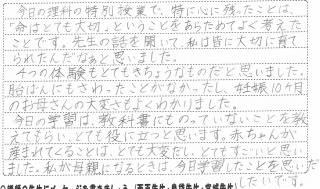 今日の理科の特別授業で、特に心に残ったことは、
「命はとても大切」ということをあらためてよく考えた
ことです。先生の話を聞いて、私は皆に大切に育て
られたんだなぁと思いました。
4つの体験もとてもきちょうなものだと思いました。
胎ばんにもさわったことがなかったし、妊娠10ヶ月
のお母さんの大変さもよくわかりました。
今日の学習は、教科書にものっていないことを教
えてもらい、とても役に立つと思います。赤ちゃんが
産まれてくることは、とても大変だし、とてもすごいと思い
ました。私が母親になるときは、今日学習したことを思いだ
したいです。